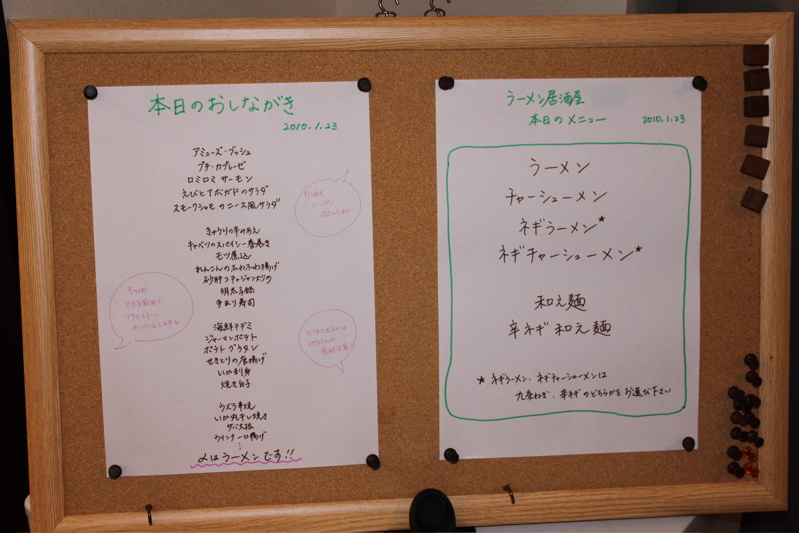 本日のおしながき
2010.1.23
アミューズ・ブッシュ
プチ・カプレーゼ
ロミロミ サーモン
えびとアボガドのサラダ
スモークシャモのニース風サラダ
きゅうりの辛みあえ
キャベツのスパイシー春巻き
モツ煮込
れんこんのふわふわ揚げ
砂肝コチュジャン
明太子
手まり寿司
海鮮チヂミ
ジャーマンポテト
ポテトグラタン
せきとりの唐揚げ
いか刺身
焼き白子
ウズラ串焼
いか丸干し焼き
ウインナー
〆はラーメンです!!
その他
できる範囲で
リクエストに
おこたえします
ラーメン居酒屋
本日のメニュー
2010.1.23
ラーメン
チャーシューメン
ネギラーメン★
ネギチャーシューメン★
和え麺
辛ネギ和え麺
★ ネギラーメン、ネギチャーシューメンは
九条ねぎ、辛ネギのどちらかをお選び下さい